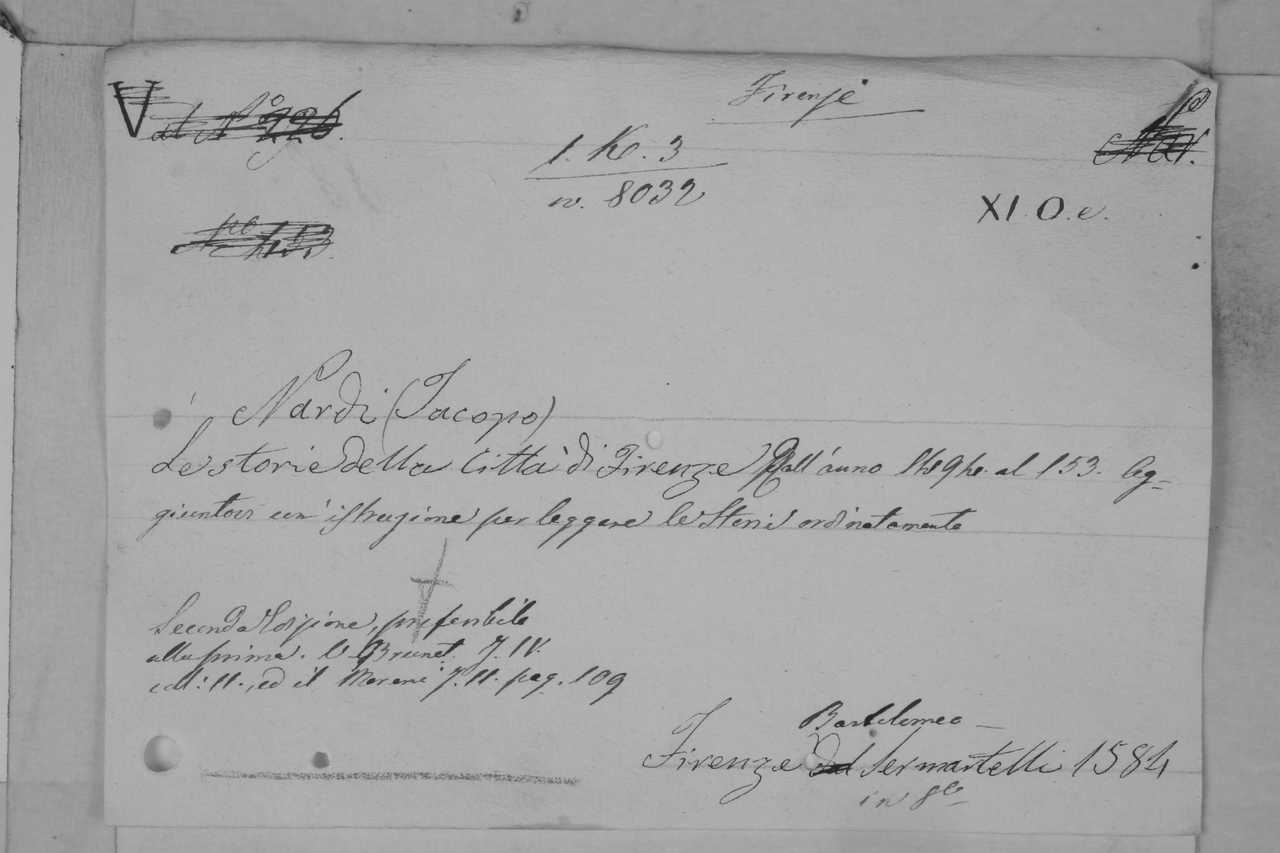 V al N° 796.
Firenze
1. K. 3
n. 8032
XI. O. e.
Nardi (Jacopo)
Le storie della Città di Firenze Dall'anno al 153. Ag-
giuntovi un'istruzione per leggere le Storie ordinatamente
Seconda Edizione, preferibile
alla prima. V. Brunet. T. IV.
col: 11., ed il Moreni T. II. pag. 109
Bartolomeo
Firenze Sermartelli 1584
in 8°